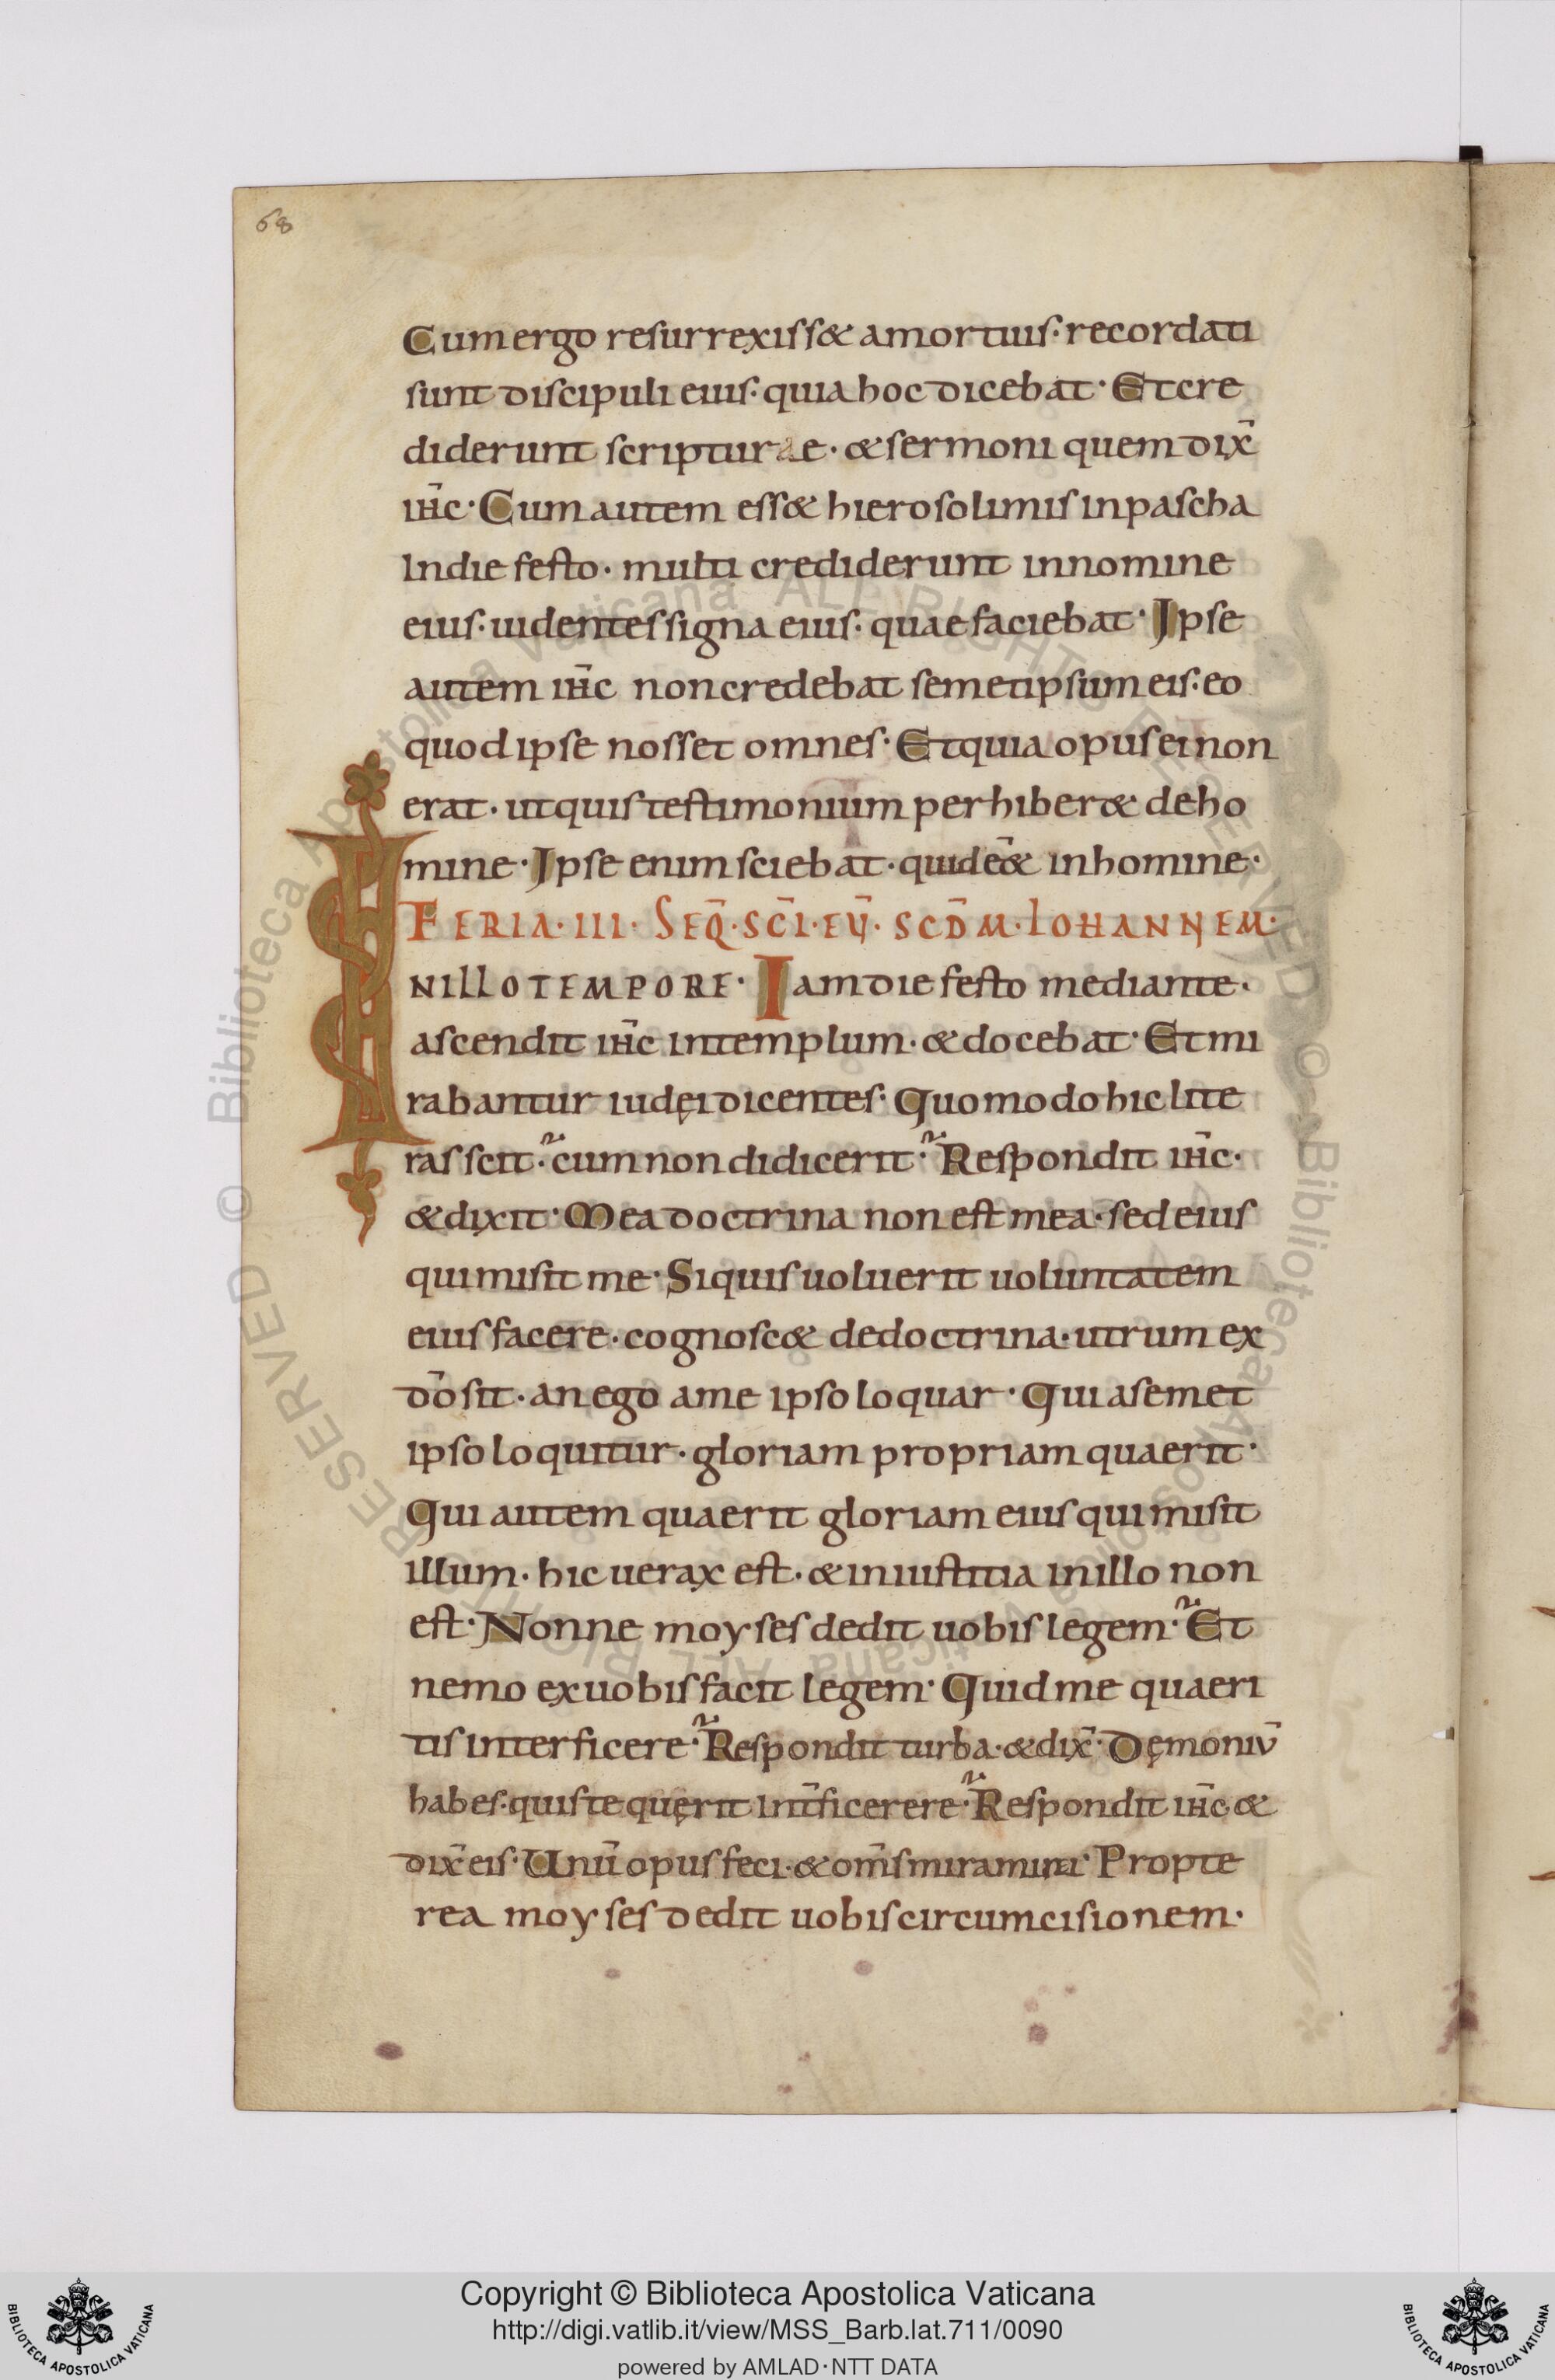 68
Cum ergo resurrexiss& amortuis· recordati
sunt discipuli eius· quia hoc dicebat· Et cre
diderunt scripturae· & sermoni quem dix̄
ihc̄· Cum autem ess& hierosolimis inpascha
Indie festo· multi crediderunt innomine
eius· uidentes signa eius· quae faciebat· Ipse
autem ihc̄ non credebat semetipsum eis· eo
quod ipse nosset omnes· Et quia opus ei non
erat· ut quis testimonium perhiber& deho
mine· Ipse enim sciebat· quid eē& inhomine·
FERIA· III· SEQ̄· SC̄I· EṼ· SCD̄M· IOHANNEM·
IN ILLO TEMPORE· Iam die festo mediante·
ascendit ihc̄ intemplum· & docebat· Et mi
rabantur iudęi dicentes· Quomodo hic lite
ras scit· cum non didicerit· Respondit ihc̄·
& dixit· Mea doctrina non est mea· sed eius
qui misit me· Siquis uoluerit uoluntatem
eius facere· cognosc& dedoctrina· utrum ex
dō sit· an ego ame ipso loquar· Qui asemet
ipso loquitur· gloriam propriam quaerit·
Qui autem quaerit gloriam eius qui misit
illum· hic uerax est· & iniustitia inillo non
est· Nonne moyses dedit uobis legem· Et
nemo exuobis facit legem· Quid me quaeri
tis interficere· Respondit turba· & dix̄· Dęmoniū
habes· quis te quęrit int̄ficerere· Respondit ihc̄ &
dix̄ eis· Unū opus feci· & om̄s miramini· Propte
rea moyses dedit uobis circumcisionem·
© Biblioteca Apostolica Vaticana ALL RIGHTS RESERVED © Biblioteca Apostolica Vaticana ALL RIGHTS RESERVED
Copyright © Biblioteca Apostolica Vaticana
http://digi.vatlib.it/view/MSS_Barb.lat.711/0090
powered by AMLAD·NTT DATA
BIBLIOTECA APOSTOLICA VATICANA
BIBLIOTECA APOSTOLICA VATICANA